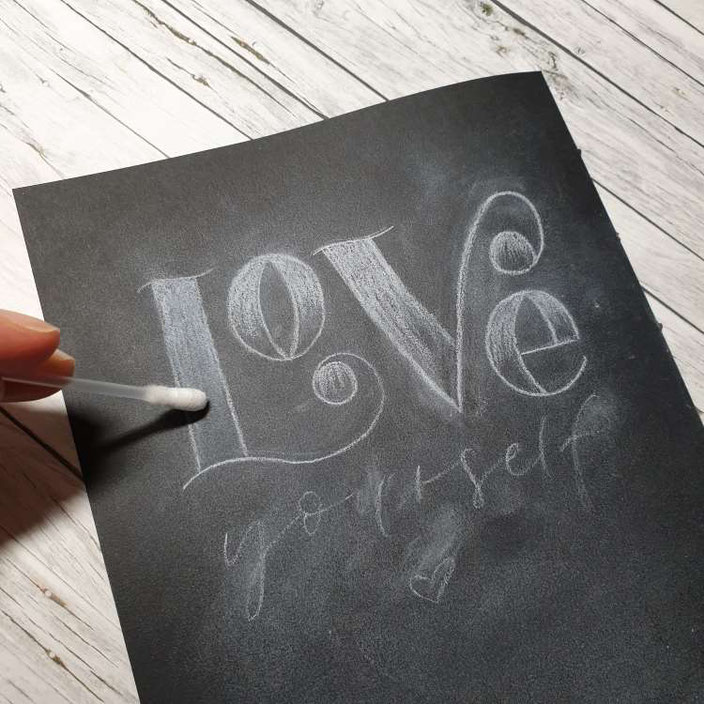 LOVe
yourself